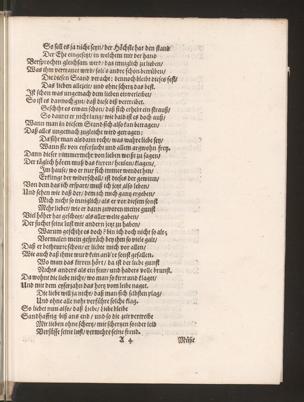 So soll es ja nicht seyn/ der Höchste hat den stand
Der Ehe eingesetzt/ in welchem mir der hand
Versprochen gleichsam wird/ das müglich zu lieben/
Was ihm vertrauet wird/ solt andre schon betrüben/
Die diesen Stand veracht; dennoch bleibe dieses fest/
Das lieben allezeit/ und ohne schertz das best.
Ist schon was ungemach dem lieben einverleibet/
So ist es dannoch gut/ daß diese diß vertreibet.
Geschicht es etwan schon/ daß sich erhebt ein strauß/
So dauret er nicht lang/ wie bald ist es doch auß/
Wann man in diesem Stand sich also kan betragen/
Daß alles ungemach zugleich wird getragen:
Da siht man als dann recht/ was wahre liebe sey/
Wann sie von eyfersucht und allem argwohn frey.
Dann dieser nimmermehr von lieben weiß zu sagen/
Der täglich hören muß das kirren/ heulen/ klagen/
Im hause/ wo er nur sich immer wendet hin/
Erklingt der widerschall/ ist dieses der gewinn/
Von dem das ich ersparet/ muß ich jetzt also leben/
Und sehen wie daß der/ dem ich mich gantz ergeben/
Mich nicht so inniglich/ als er vor diesem sonst
Mehr liebet/ wie er dann zuvoren meine gunst
Viel höher hat geschätzt/ als aller welt gaben/
Der suchet seine lust mit andern jetzt zu haben/
Warum geschiht es doch? bin ich doch nicht so alt;
Vormalen mein gespräch bey ihm so viele galt/
Daß er betheurte schon/ er liebte mich vor allen/
Wo man das kirren hört/ da ist der liebe gunst
Nichts anders als ein feur/ und haders volle brunst.
Da wohnt die liebe nicht/ wo man so kirrt und klaget/
Und mit dem eyfer jahn das hertz vom leibe naget.
Die liebe will ja nicht/ daß man sich selbsten plag/
Und ohne alle noht verführe solche klag.
So liebet nun also/ daß Liebe/ Liebe bleibt
Standhafftig biß ans end/ und so die zeit vertreibt
Mit lieben ohne schertz/ mit schertzen sonder leid
A 4
Müsse